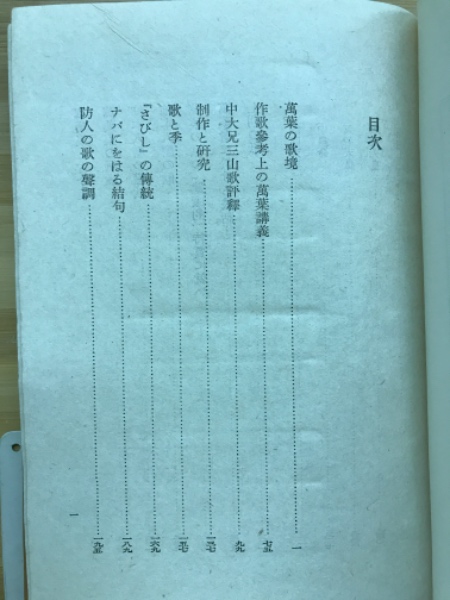 目次
萬葉の歌境…………一
作歌參考上の萬葉講義…………七五
中大兄三山歌評釋…………九九
制作と硏究…………
歌と季…………
『さびし』の傳統…………一六九
ナバにをはる結句…………一八九
防人の歌の聲調…………
一